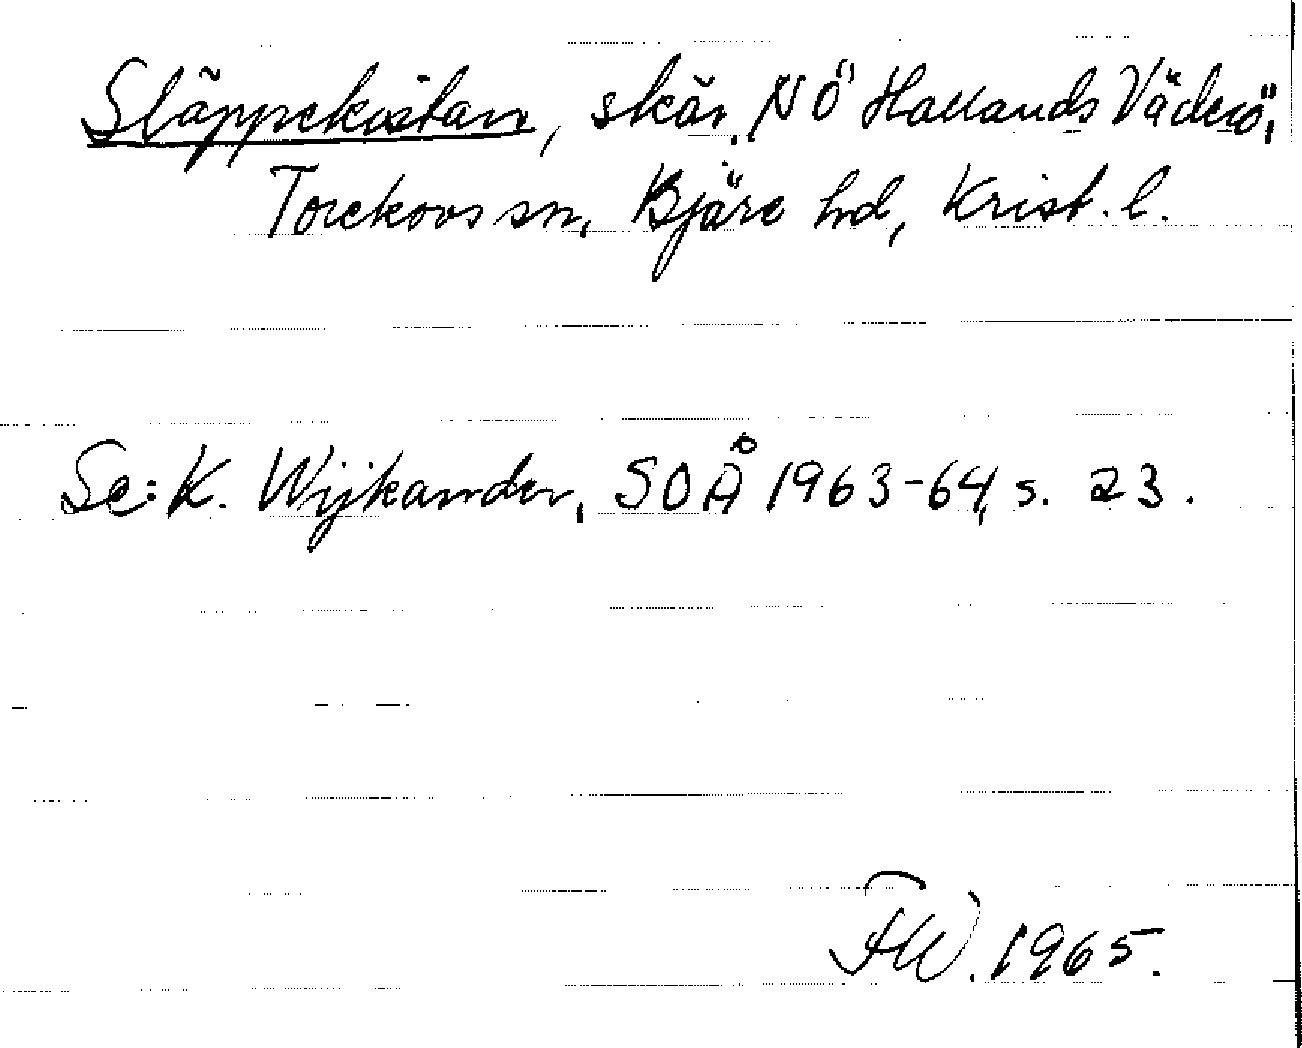 Släppekistan, skär, NÖ Hallands Väderö,
Torekovs sn, Bjäre hd, Krist. l.
Se: K. Wijkander, SOÅ 1963-64, s. 23.
FW. 1965.